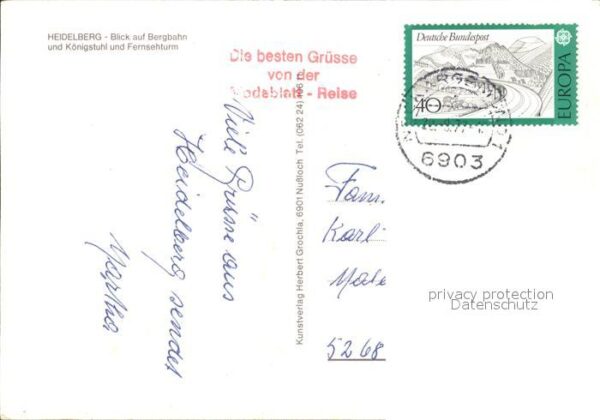 HEIDELBERG - Blick auf Bergbahn
und Königstuhl und Fernsehturm
Die besten Grüsse
von der
Modeblatt - Reise
Viele Grüsse aus
Heidelberg sendet
Martha
Kunstverlag Herbert Grochla, 6901 Nußloch Tel. (062 24)
Deutsche Bundespost
40
EUROPA
6903
Fam.
Karl
Male
5268
privacy protection
Datenschutz